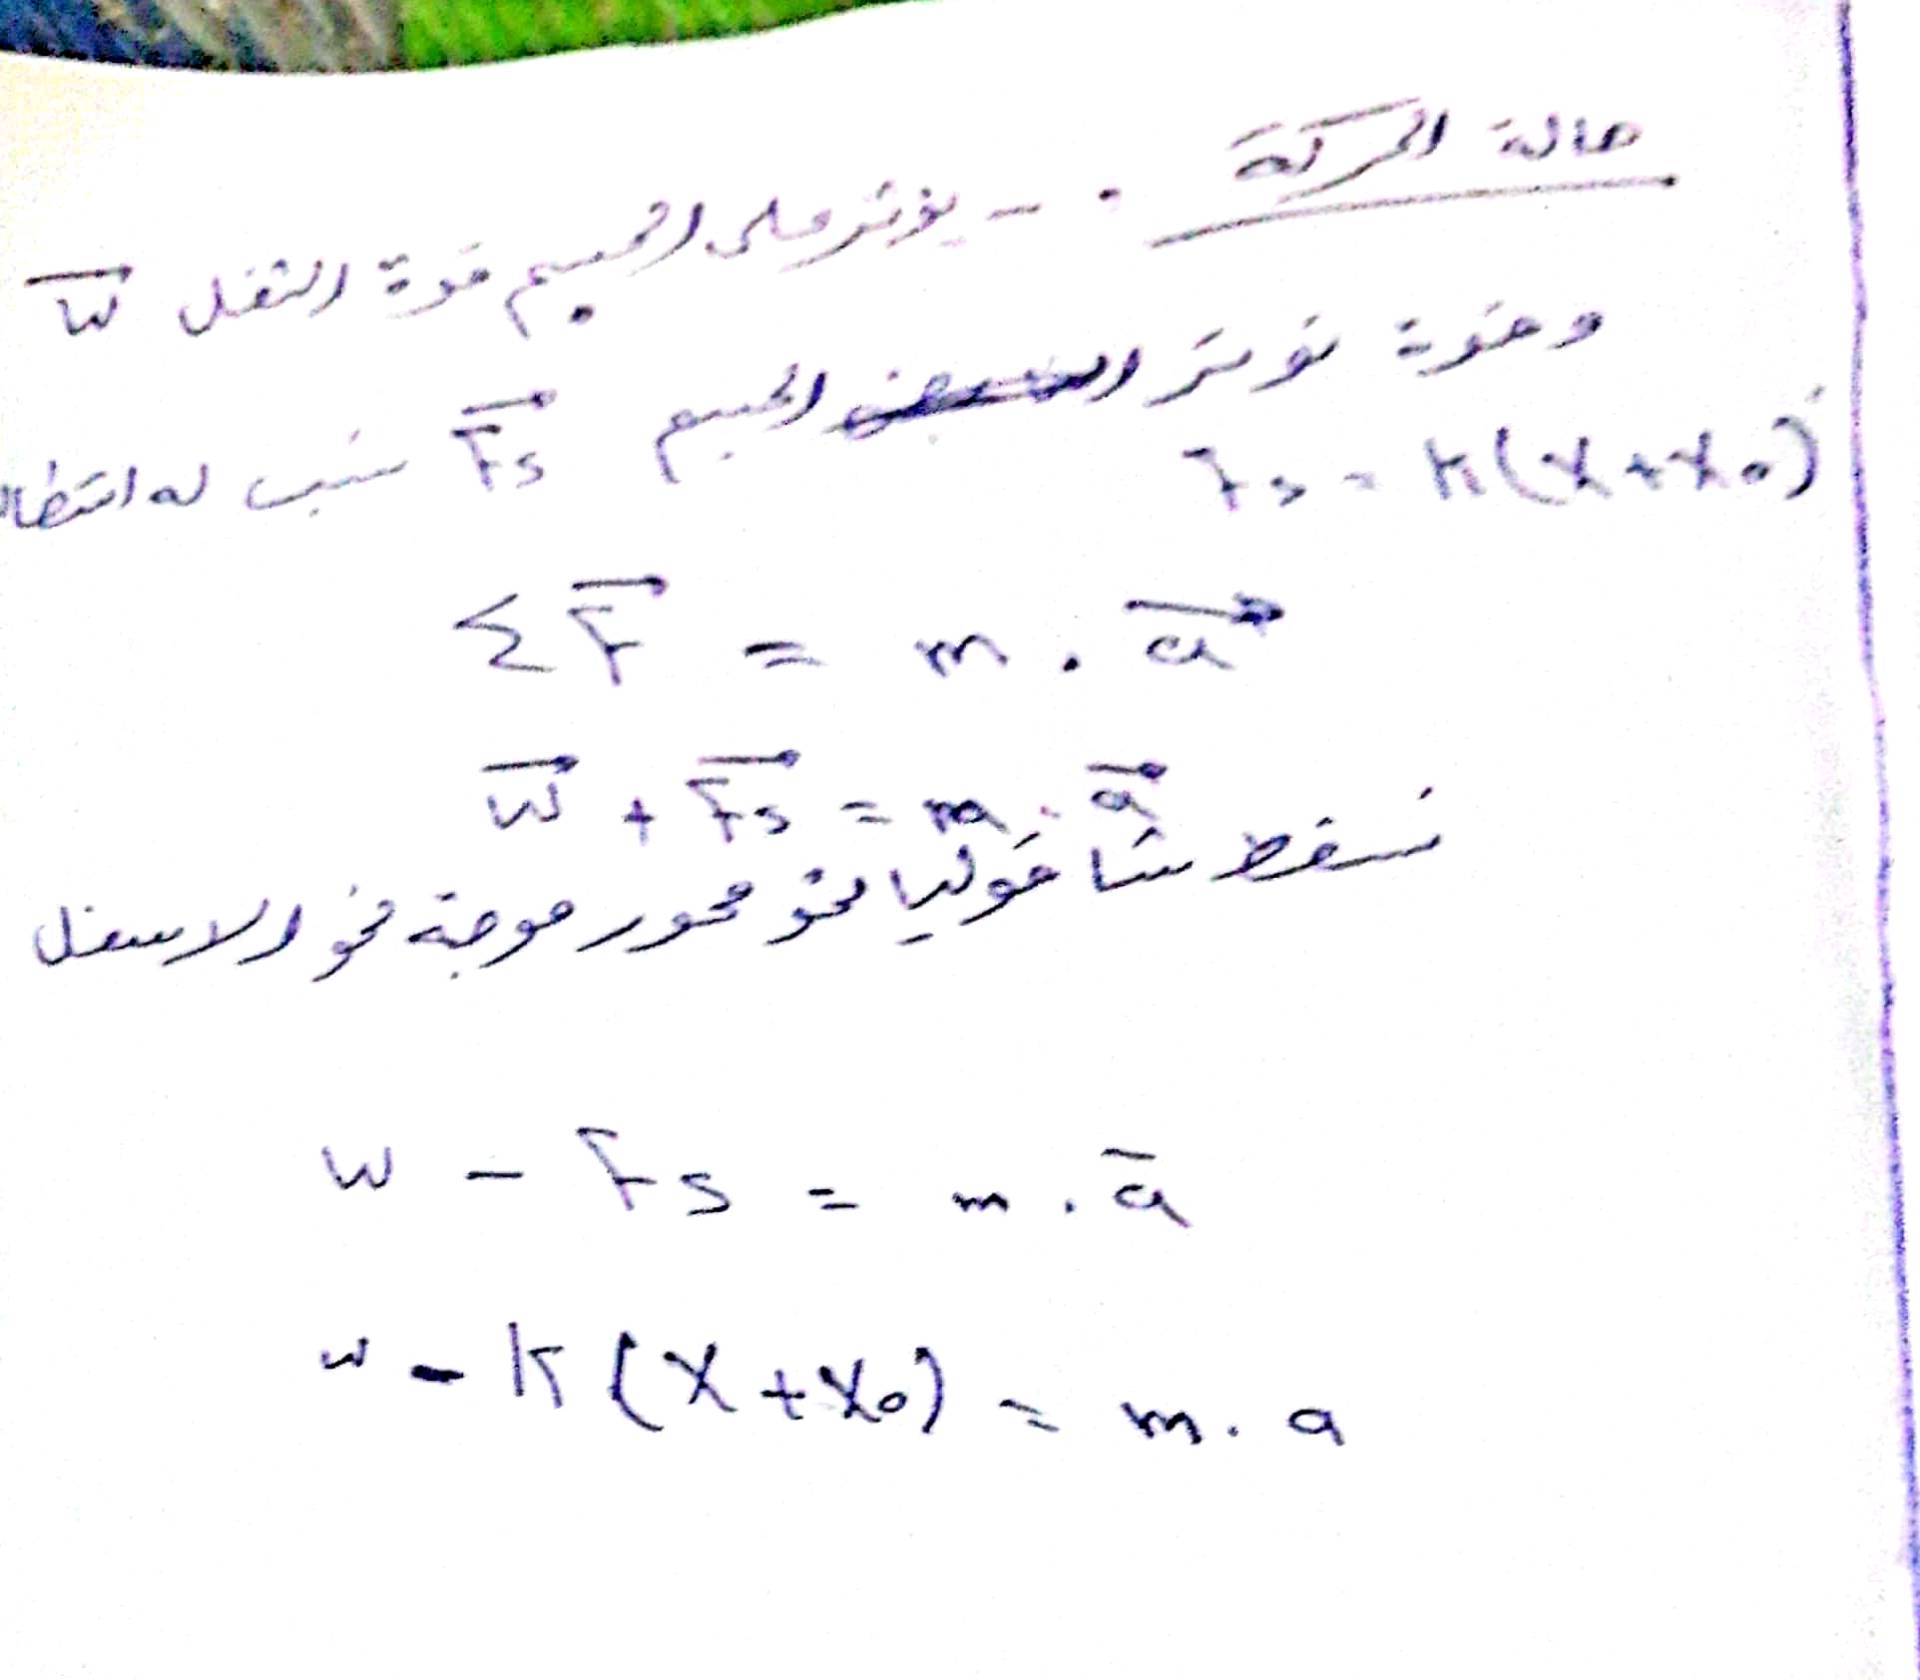 حالة الحركة : - يؤثر على الجسم قوة الثقل W
وقوة توتر الجسم Fs تسبب له انتضا
Fs = K(X+X0)
ΣF = m . a
W + Fs = m . a
نسقط شاقوليا نحو محور موجة نحو الاسفل
W - Fs = m . a
W - K (X+X0) = m . a